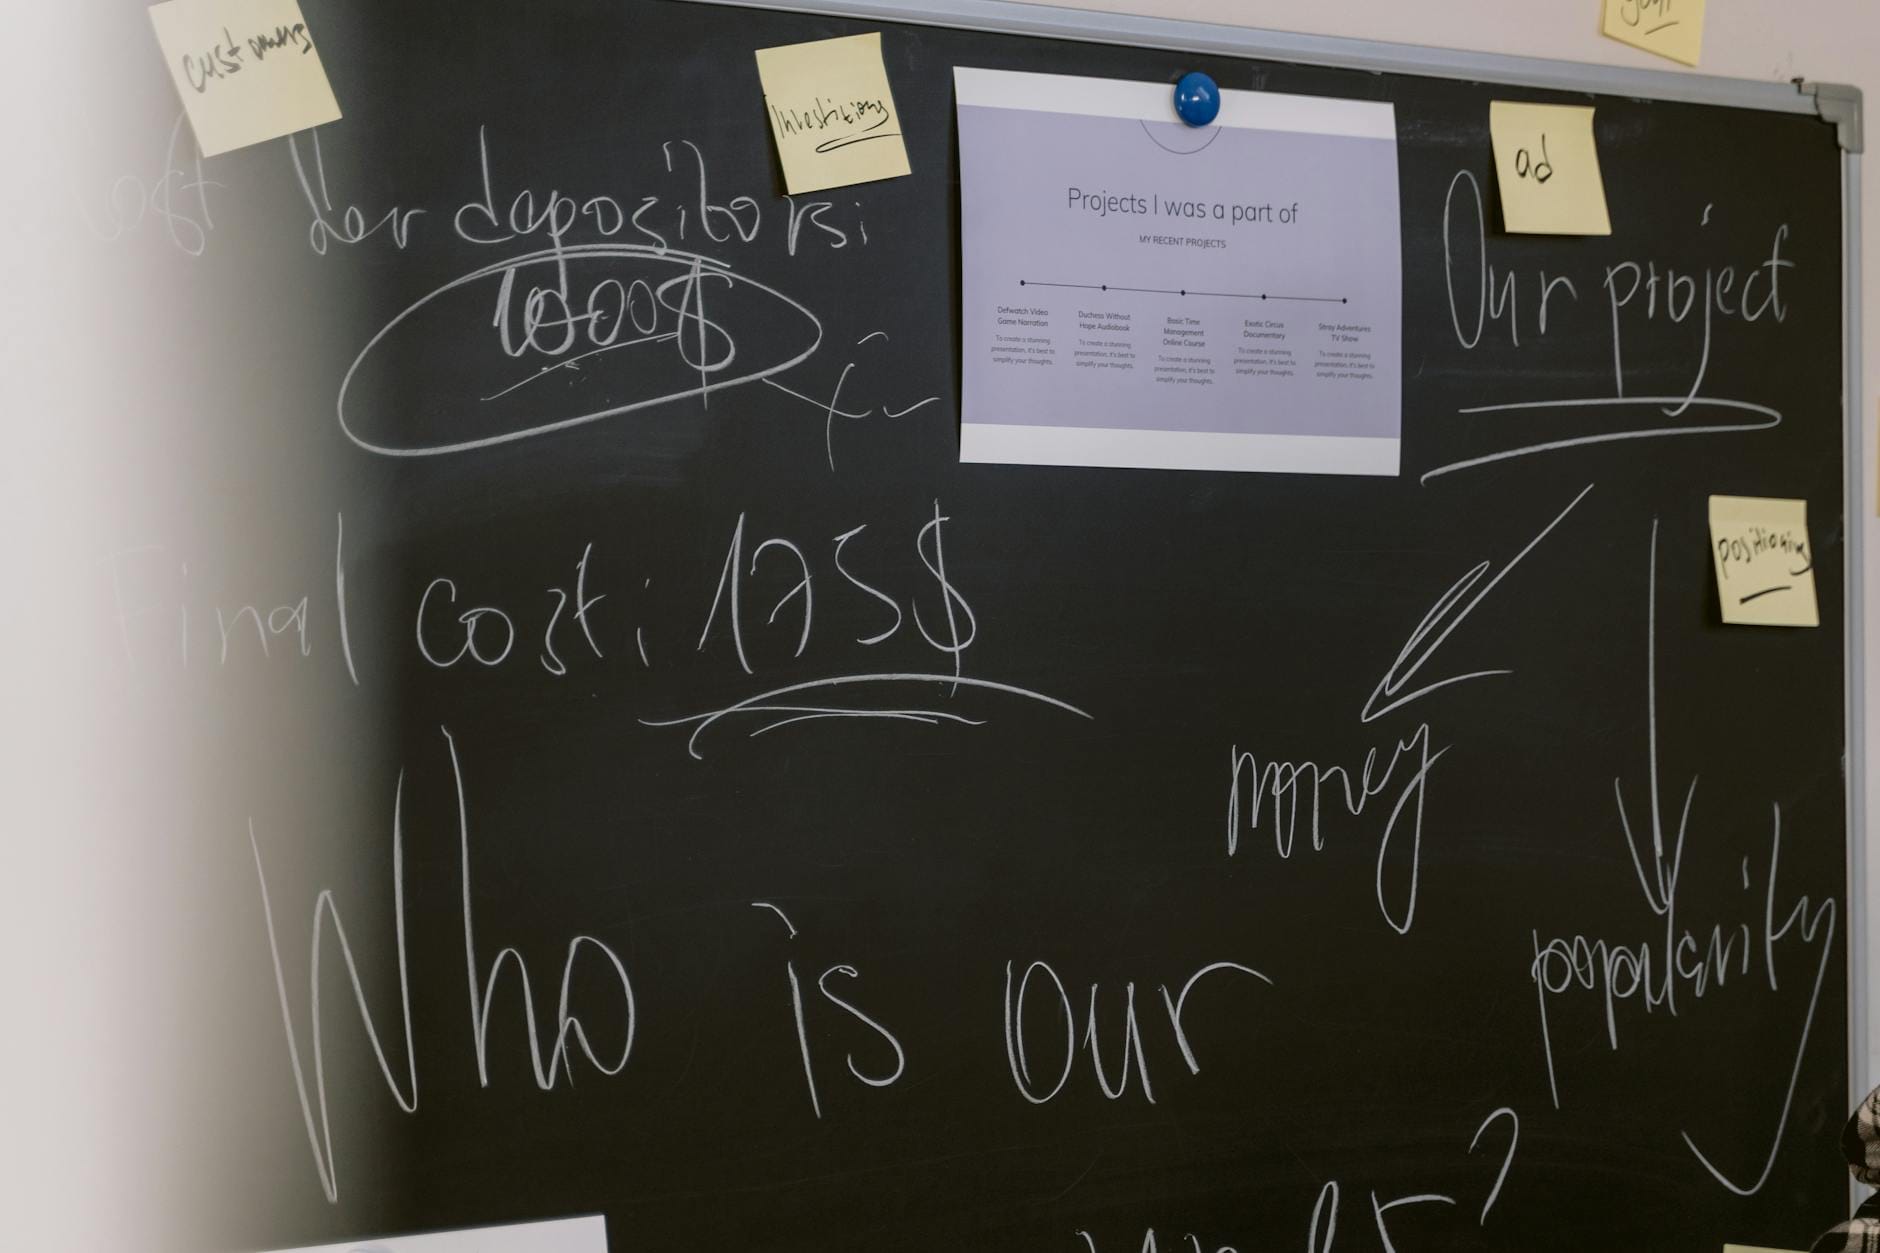 customers
Investitions
ad
your
Cost for depositors:
1000$
Projects I was a part of
MY RECENT PROJECTS
Defwatch Video
Game Narration
To create a stunning
presentation, it's best to
simplify your thoughts.
Duchess Without
Hope Audiobook
To create a stunning
presentation, it's best to
simplify your thoughts.
Basic Time
Management
Online Course
To create a stunning
presentation, it's best to
simplify your thoughts.
Exotic Circus
Documentary
To create a stunning
presentation, it's best to
simplify your thoughts.
Stray Adventures
TV Show
To create a stunning
presentation, it's best to
simplify your thoughts.
Our project
positioning
Final cost: 175$
money
popularity
Who is our
?